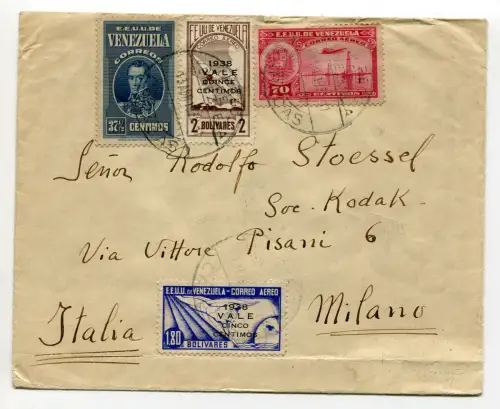 E.E.U.U. DE VENEZUELA
CORREOS
37½ CENTIMOS
EE.UU. DE VENEZUELA
CORREO AEREO
1938
VALE
QUINCE
CENTIMOS
2 BOLIVARES 2
E.E.U.U. DE VENEZUELA
CORREO AEREO
70 CENTIMOS
Señor Rodolfo Stoessel
Soc. Kodak
Via Vittore Pisani 6
Milano
Italia
E.E.U.U. DE VENEZUELA - CORREO AEREO
1938
VALE
CINCO
CENTIMOS
1.80 BOLIVARES